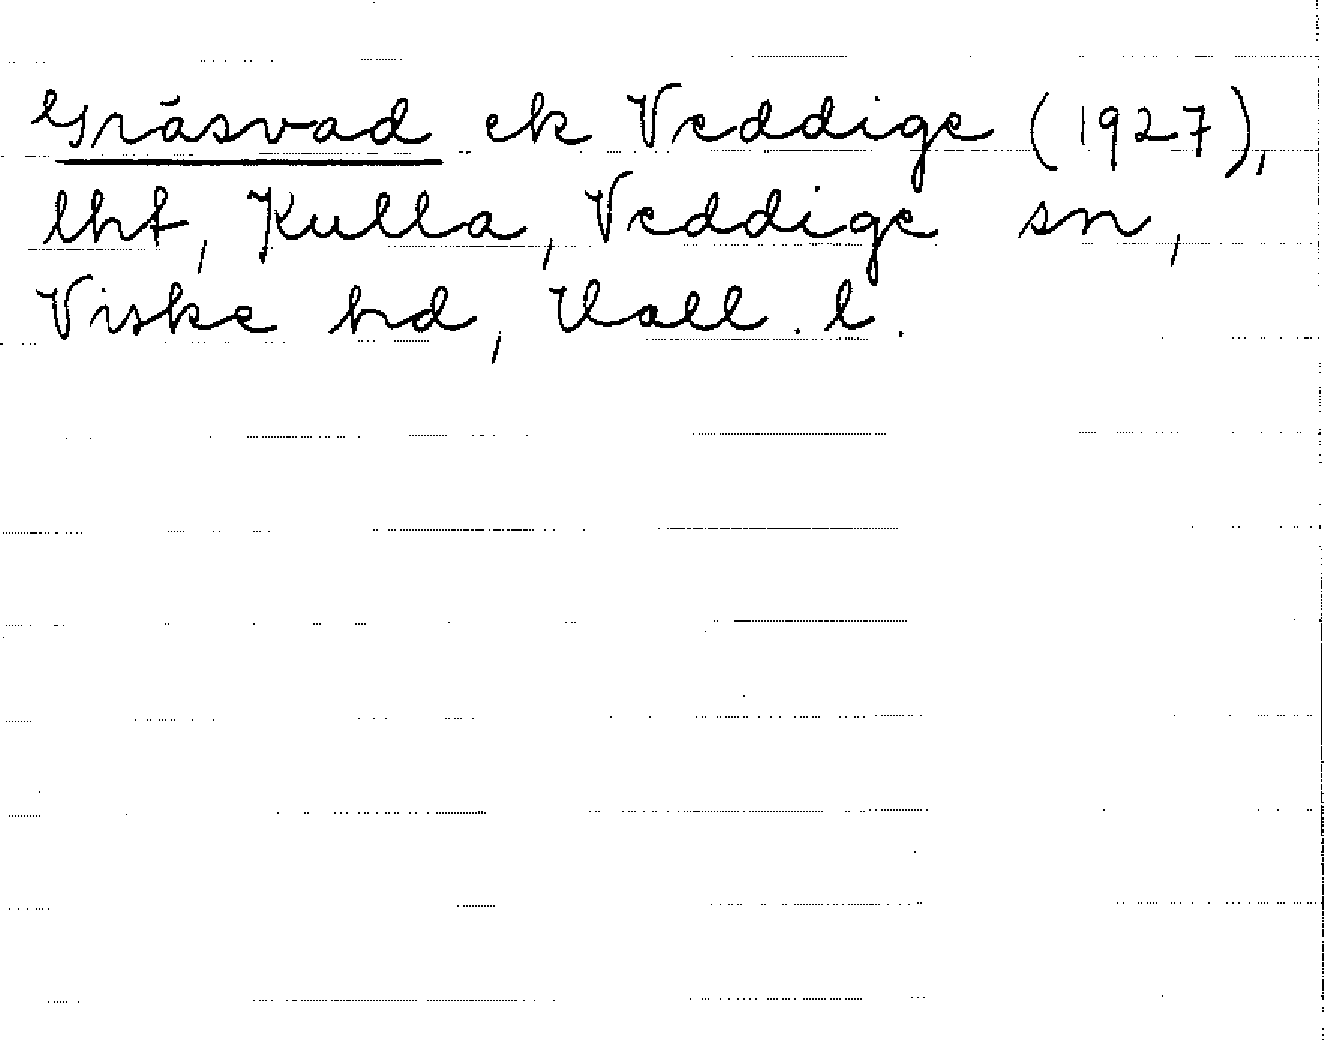 Gräsvad ek Veddige (1927),
lht, Kulla, Veddige sn,
Viske hd, Hall. l.